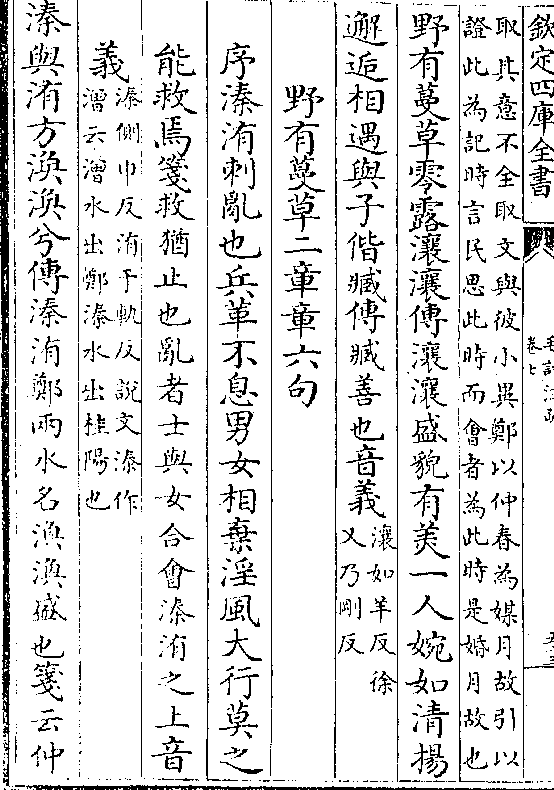 欽定四庫全書
毛詩注疏
卷七
取其意不全取文與彼小異鄭以仲春為媒月故引以
證此為記時言民思此時而會者為此時是婚月故也
野有蔓草零露瀼瀼傳瀼瀼盛貌有美一人婉如清揚
邂逅相遇與子偕臧傳臧善也音義
瀼如羊反徐
又乃剛反
野有蔓草二章章六句
序溱洧刺亂也兵革不息男女相棄淫風大行莫之
能救焉箋救猶止也亂者士與女合會溱洧之上音
義
溱側巾反洧于軌反說文溱作
潧云潧水出鄭溱水出桂陽也
溱與洧方渙渙兮傳溱洧鄭兩水名渙渙盛也箋云仲